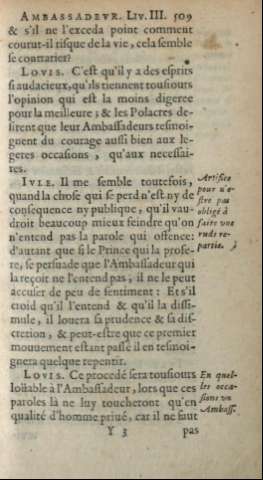 AMBASSADEVR. LIV. III. 509
& s'il ne l'exceda point comment
courut-il risque de la vie, cela semble
se contrarier?
LOVIS. C'est qu'il y a des esprits
si audacieux, qu'ils tiennent tousiours
l'opinion qui est la moins digeree
pour la meilleure; & les Polacres de-
sirent que leur Ambassadeurs tesmoi-
gnent du courage aussi bien aux le-
geres occasions, qu'aux necessai-
res.
IVLE. Il me semble toutefois,
quand la chose qui se perd n'est ny de
consequence ny publique, qu'il vau-
droit beaucoup mieux feindre qu'on
n'entend pas la parole qui offence:
d'autant que si le Prince qui la profe-
re, se persuade que l'Ambassadeur qui
la reçoit ne l'entend pas, il ne le peut
acculer de peu de sentiment: Et s'il
croid qu'il l'entend & qu'il la dissi-
mule, il louera sa prudence & sa dis-
cretion, & peut-estre que ce premier
mouuement estant passé il en tesmoi-
gnera quelque repentir.
LOVIS. Ce procedé sera tousiours
loüable à l'Ambassadeur, lors que ces
paroles là ne luy toucheront qu'en
qualité d'homme priué, car il ne faut
Y 3 pas
Artifice
pour n'e-
stre pas
obligé à
faire vne
rude re-
partie.
En quel-
les occa-
sions vn
Ambass.